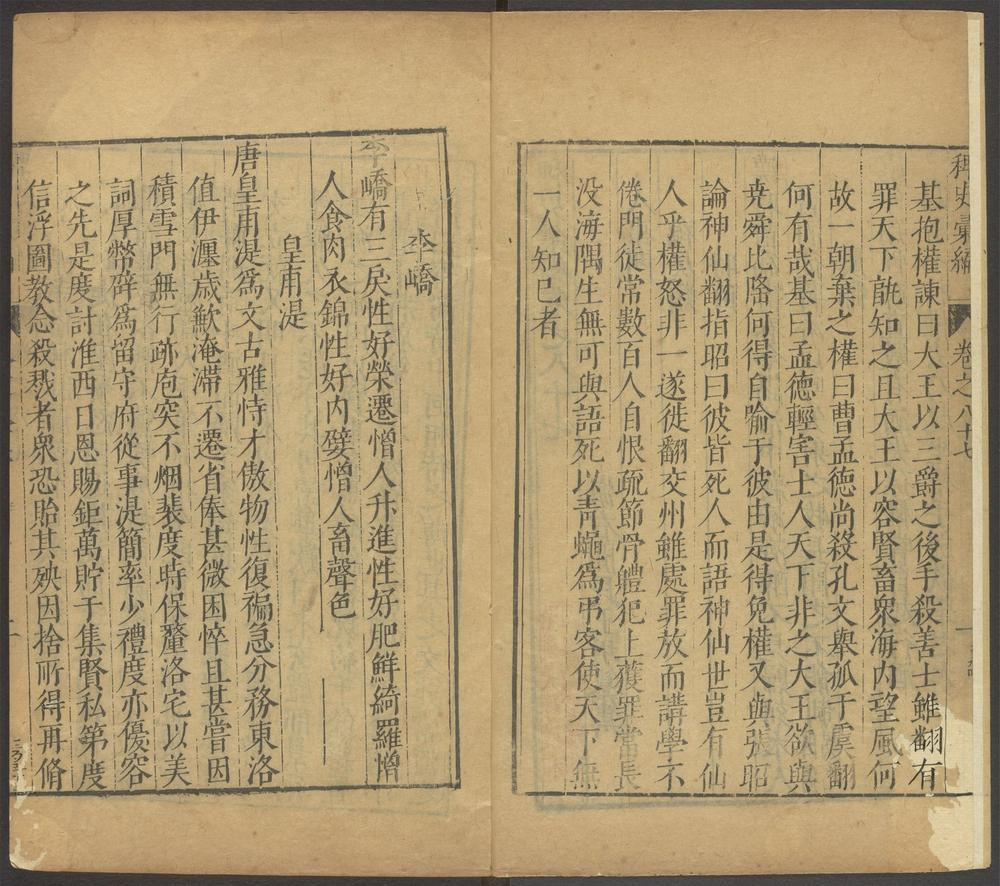 稗史彙編
卷之八十七
基抱權諫曰大王以三爵之後手殺善士雖翻有
罪天下孰知之且大王以容賢畜衆海内望風何
故一朝棄之權曰曹孟德尚殺孔文舉孤于虞翻
何有哉基曰孟德輕害士人天下非之大王欲與
尭舜比隆何得自喻于彼由是得免權又與張昭
論神仙翻指昭曰彼皆死人而語神仙世豈有仙
人乎權怒非一遂徙翻交州雖處罪放而講學不
倦門徒常數百人自恨疏節骨體犯上獲罪當長
没海隅生無可與語死以青蠅爲弔客使天下無
一人知已者
李嶠
李嶠有三戾性好榮遷憎人升進性好肥鮮綺羅憎
人食肉衣錦性好内嬖憎人畜聲色
皇甫湜
唐皇甫湜爲文古雅恃才傲物性復褊急分務東洛
值伊瀍歳歉淹滯不遷省俸甚微困悴且甚嘗因
積雪門無行跡庖突不烟裴度時保釐洛宅以美
詞厚幣辟爲留守府從事湜簡率少禮度亦優容
之先是度討淮西日恩賜鉅萬貯于集賢私第度
信浮圖教念殺戮者衆恐貽其殃因捨所得再脩